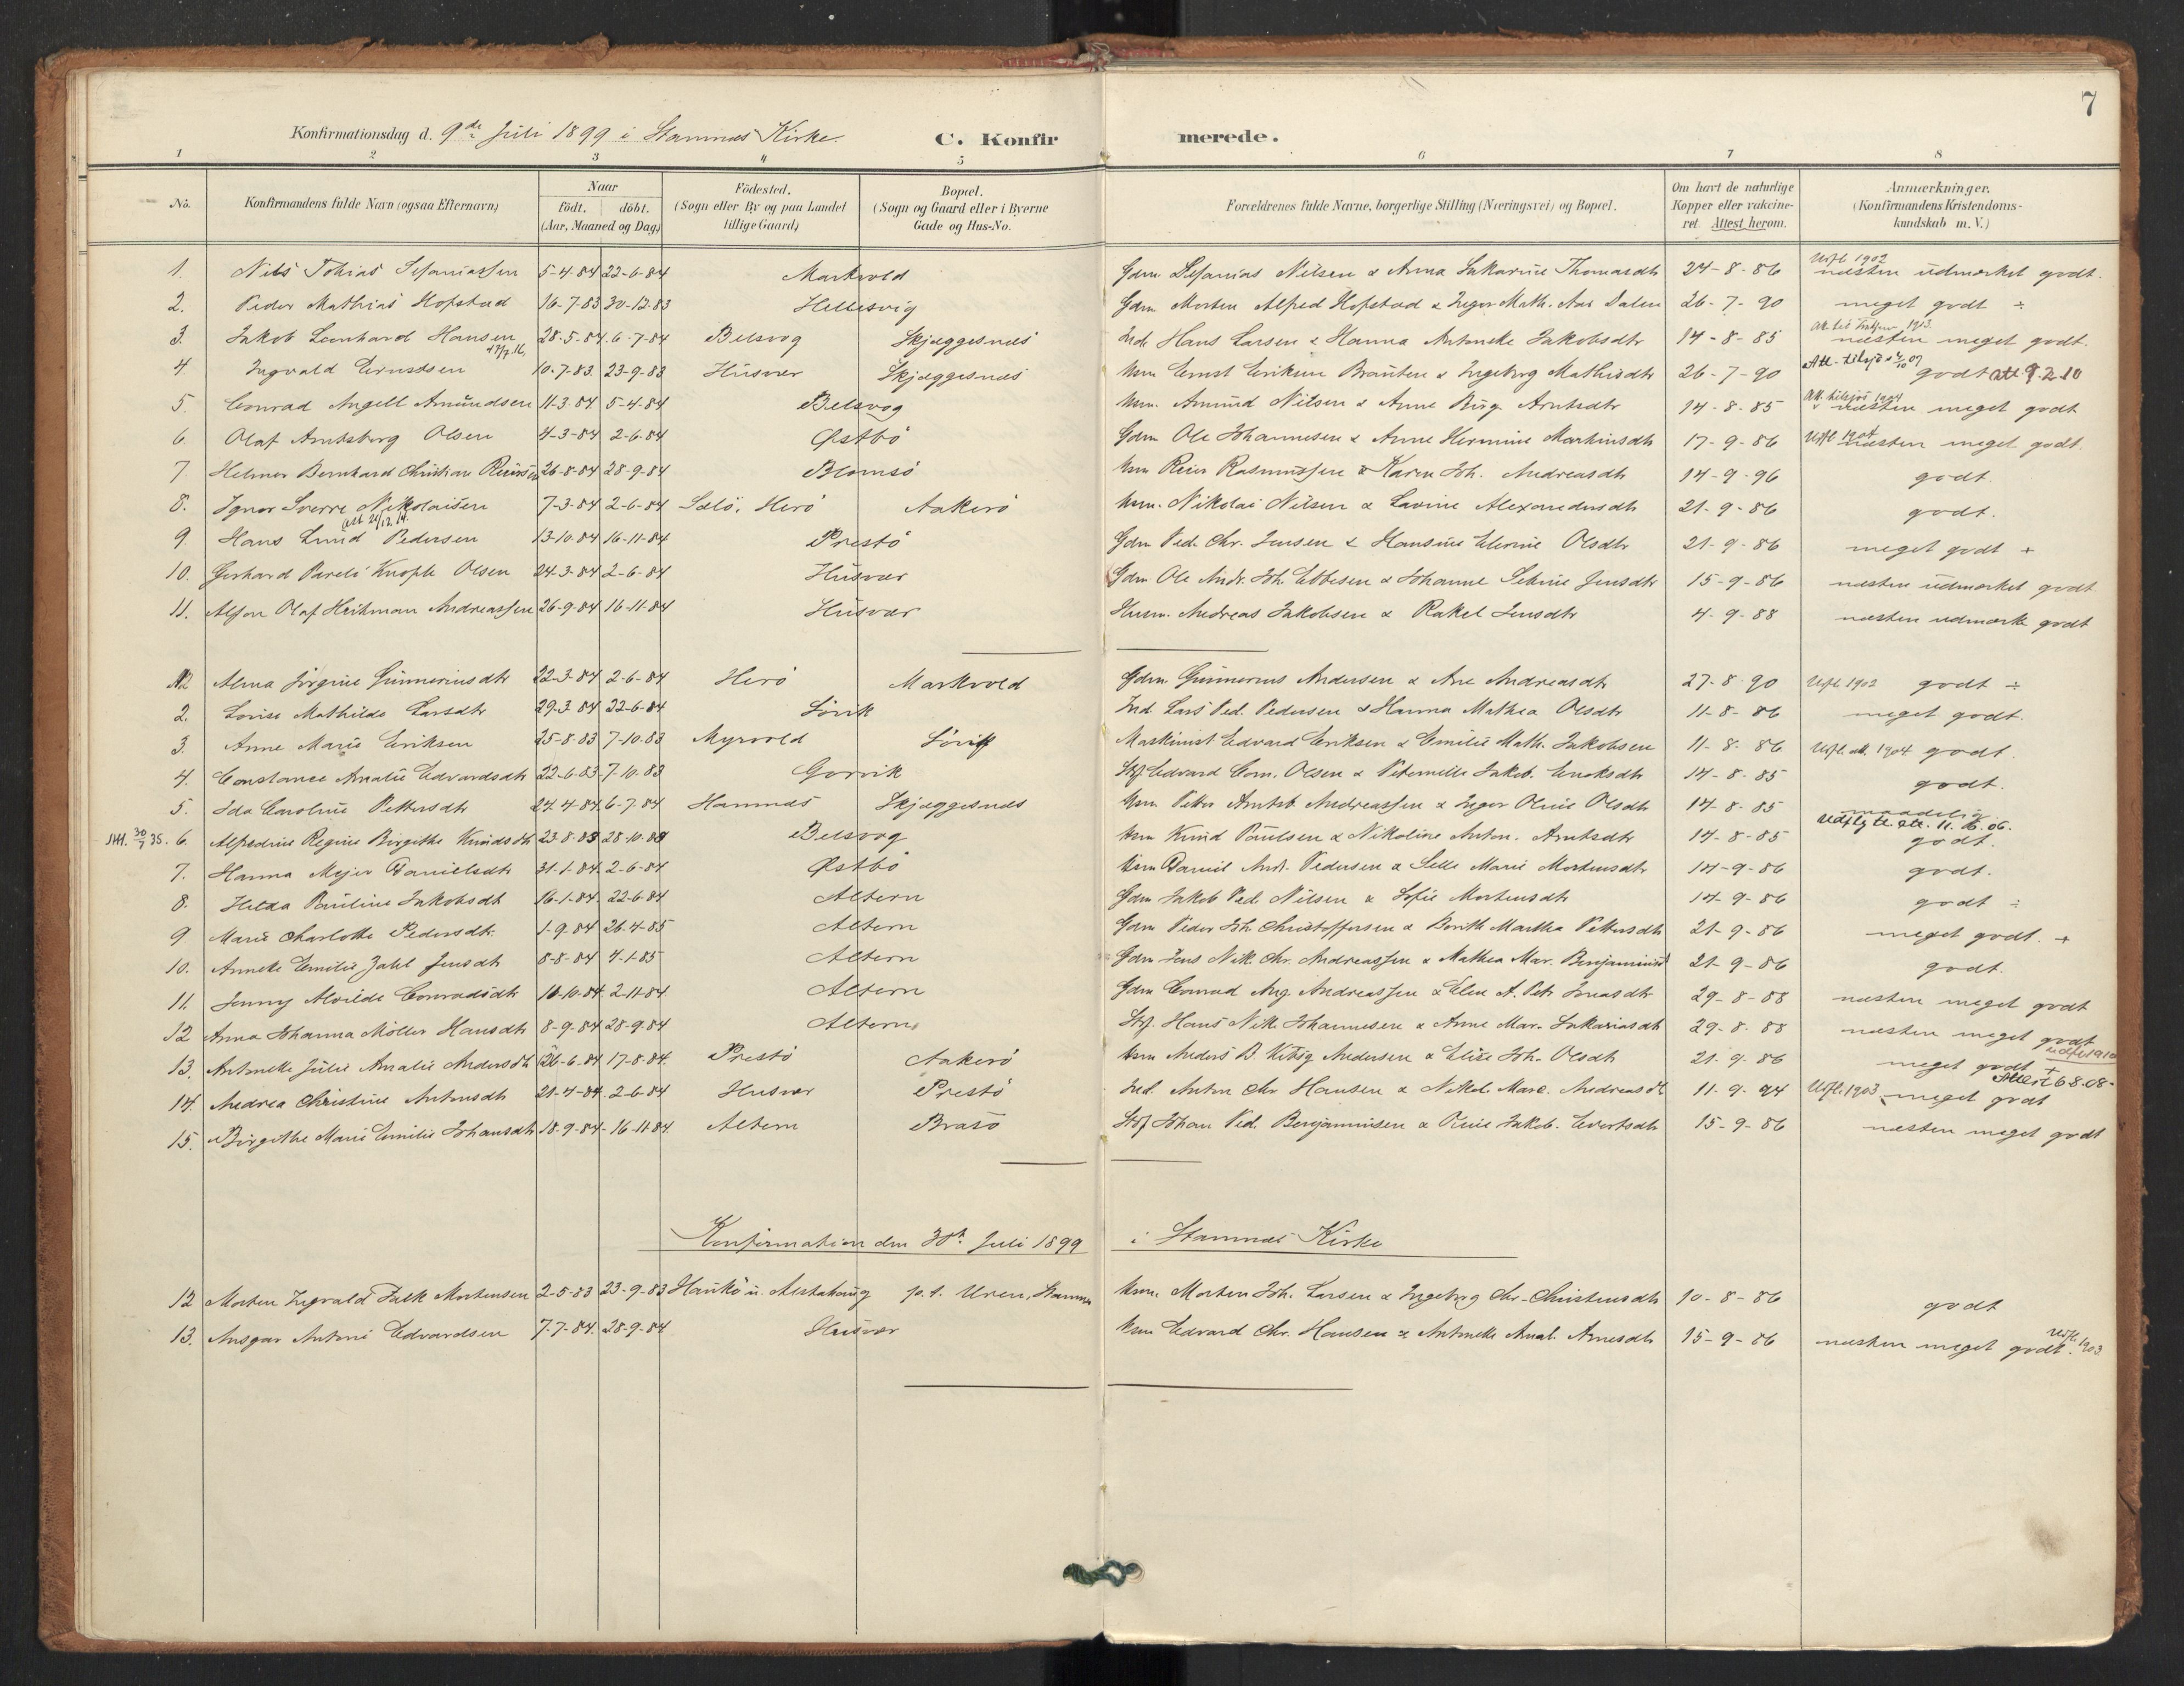 7
Konfirmationsdag d. 9de Juli 1899 i Stamnes Kirke. C. Konfirmerede.
1 2 3 4 5 6 7 8
No. Konfirmandens fulde Navn (ogsaa Efternavn) Naar födt. döbt. (Aar, Maaned og Dag) Födested. (Sogn eller By og paa Landet tillige Gaard) Bopæl. (Sogn og Gaard eller i Byerne Gade og Hus-No. Forældrenes fulde Navne, borgerlige Stilling (Næringsvei) og Bopæl. Om havt de naturlige Kopper eller vakcineret. Attest herom. Anmærkninger. (Konfirmandens Kristendomskundskab m. V.)
1. Nils Tobias Sefaniassen 5-4-84 22-6-84 Markvold Gdm. Sefanias Nilsen & Anna Sakarine Thomasdtr 24-8-86 Utfl 1902 næsten udmærket godt.
2. Peder Mathias Hofstad 16-7-83 30-12-83 Hellesvig Gdm Morten Alfred Hofstad & Inger Math. Dalen 26-7-90 meget godt ÷
3. Jakob Leonhard Hansen 28-5-84 6-7-84 Belsvog Skjæggesnes Ind. Hans Larsen & Hanna Antoneke Jakobsdtr 14-8-85 1913. næsten meget godt.
4 Ingvald Ernstsen 10-7-83 23-9-83 Husvær Skjæggesnes Hsm Ernst Eriksen Brauten & Ingeborg Mathisdtr 26-7-90 godt att 9.2.10
5. Conrad Angell Amundsen 11-3-84 5-4-84 Belsvog Hsm. Amund Nilsen & Anne Birg. Arntsdtr 14-8-85 1904 næsten meget godt
6. Olaf Arntsberg Olsen 4-3-84 2-6-84 Østbö Gdm Ole Johannesen & Anne Hermine Martinsdtr 17-9-86 Utfl 1904 næsten meget godt.
7. Helmer Bernhard Christian Reiersen 26-8-84 28-9-84 Blomsö Hsm Reier Rasmussen & Karen Joh. Andreasdtr 14-9-96 godt.
8. Ignor Sverre Nikolaisen 7-3-84 2-6-84 Salö, Herö Aakerö Hsm. Nikolai Nilsen & Lovine Alexandersdtr 21-9-86 godt.
9. Hans Lund Pedersen 13-10-84 16-11-84 Prestö Gdm Ped. Chr. Jensen & Hansine Elerine Olsdtr 21-9-86 meget godt +
10. Gerhard Pareli Knoph Olsen 24-3-84 2-6-84 Husvær Gdm Ole Andr. Joh. Ebbesen & Johanne Seline Jensdtr 15-9-86 næsten udmærket godt
11. Alfon Olaf Heitman Andreassen 26-9-84 16-11-84 Husvær Husm. Andreas Jakobsen & Rakel Jensdtr 4-9-88 næsten udmærk godt
Alma Jörgine Gunneriusdtr 22-3-84 2-6-84 Herö Markvold Gdm. Gunnerius Andersen & Ane Andreasdtr 27-8-90 Utfl 1902 godt ÷
2. Lovise Mathilde Larsdtr 29-3-84 22-6-84 Sörvik Ind. Lars Ped. Pedersen & Hanna Mathea Olsdtr 11-8-86 meget godt.
3. Anne Marie Eriksen 25-8-83 7-10-83 Myrvold Sörvik Maskinist Edvard Eriksen & Emilie Math. Jakobsen 11-8-86 Utfl. att. 1904 godt.
4. Constance Amalie Edvardsdtr 22-6-83 7-10-83 Gorvik Stf Edvard Corn. Olsen & Peternille Jakob. Enoksdtr 14-8-85 godt.
5. Ida Caroline Pettersdtr 24-4-84 6-7-84 Hamnes Skjæggesnes Hsm Petter Arntsb Andreassen & Inger Oline Olsdtr 14-8-85 maadelig
30/7 35. 6. Alfredine Regine Birgithe Knudsdtr 23-8-83 28-10-83 Belsvog Hsm Knud Paulsen & Nikoline Anton. Arntsdtr 14-8-85 Udflytt. att. 11.6.06. godt.
7. Hanna Mejer Danielsdtr 31-1-84 2-6-84 Østbö Hsm Daniel Andr. Pedersen & Selle Marie Mortensdtr 14-9-86 godt.
8. Helda Pauline Jakobsdt 16-1-84 22-6-84 Altern Gdm Jakob Ped Nilsen & Sofie Mortensdtr 14-9-86 godt ÷
9 Marie Charlotte Pedersdtr. 1-9-84 26-4-85 Altern Gdm Peder Joh. Christoffersen & Berith Martha Pettersdtr 21-9-86 meget godt. +
10. Anneke Emilie Zahl Jensdtr 8-8-84 4-1-85 Altern Gdm Jens Nik. Chr. Andreassen & Mathea Mar. Benjaminsd 21-9-86 godt.
11. Jenny Alvilde Conradsdtr 16-10-84 2-11-84 Altern Gdm Conrad Ang. Andreassen & Elen A. Petr. Jonasdtr 29-8-88 næsten meget godt
12 Anna Johanna Möller Hansdtr 8-9-84 28-9-84 Altern Stf. Hans Nik Johannesen & Anne Mar. Sakariasdtr 29-8-88 næsten meget godt
13. Antonette Julie Amalie Andersdtr 26-6-84 17-8-84. Prestö Aakerö Hsm Anders B. Andersen & Elise Joh. Olsdtr 21-9-86 meget godt + udfl 1910
14. Andrea Christine Antonsdtr 21-4-84. 2-6-84 Husvær Prestö Ind. Anton Chr Hansen & Nikol. Marc. Andreasdtr 11-9-94 Utfl. 1903 meget godt Attest 6.8.08.
15. Birgithe Marie Emilie Johansdtr 18-9-84 16-11-84 Altern Brasö Stf Johan Ped. Benjaminsen & Oline Jakob. Evertsdtr 15-9-86 næsten meget godt
Konfirmation den 30th Juli 1899 i Stamnes Kirke
12 Morten Ingvald Falk Mortensen 2-5-83 23-9-83 Alstahaug p.t. Uren, Stamnes Hsm. Morten Joh. Larsen & Ingeborg Chr. Christensdtr 10-8-86 godt
13. Ansgar Antoni Edvardsen 7-7-84. 28-9-84 Husvær Hsm Edvard Chr. Hansen & Antonette Amal. Arnesdtr 15-9-86 næsten meget godt. Utfl. 1903